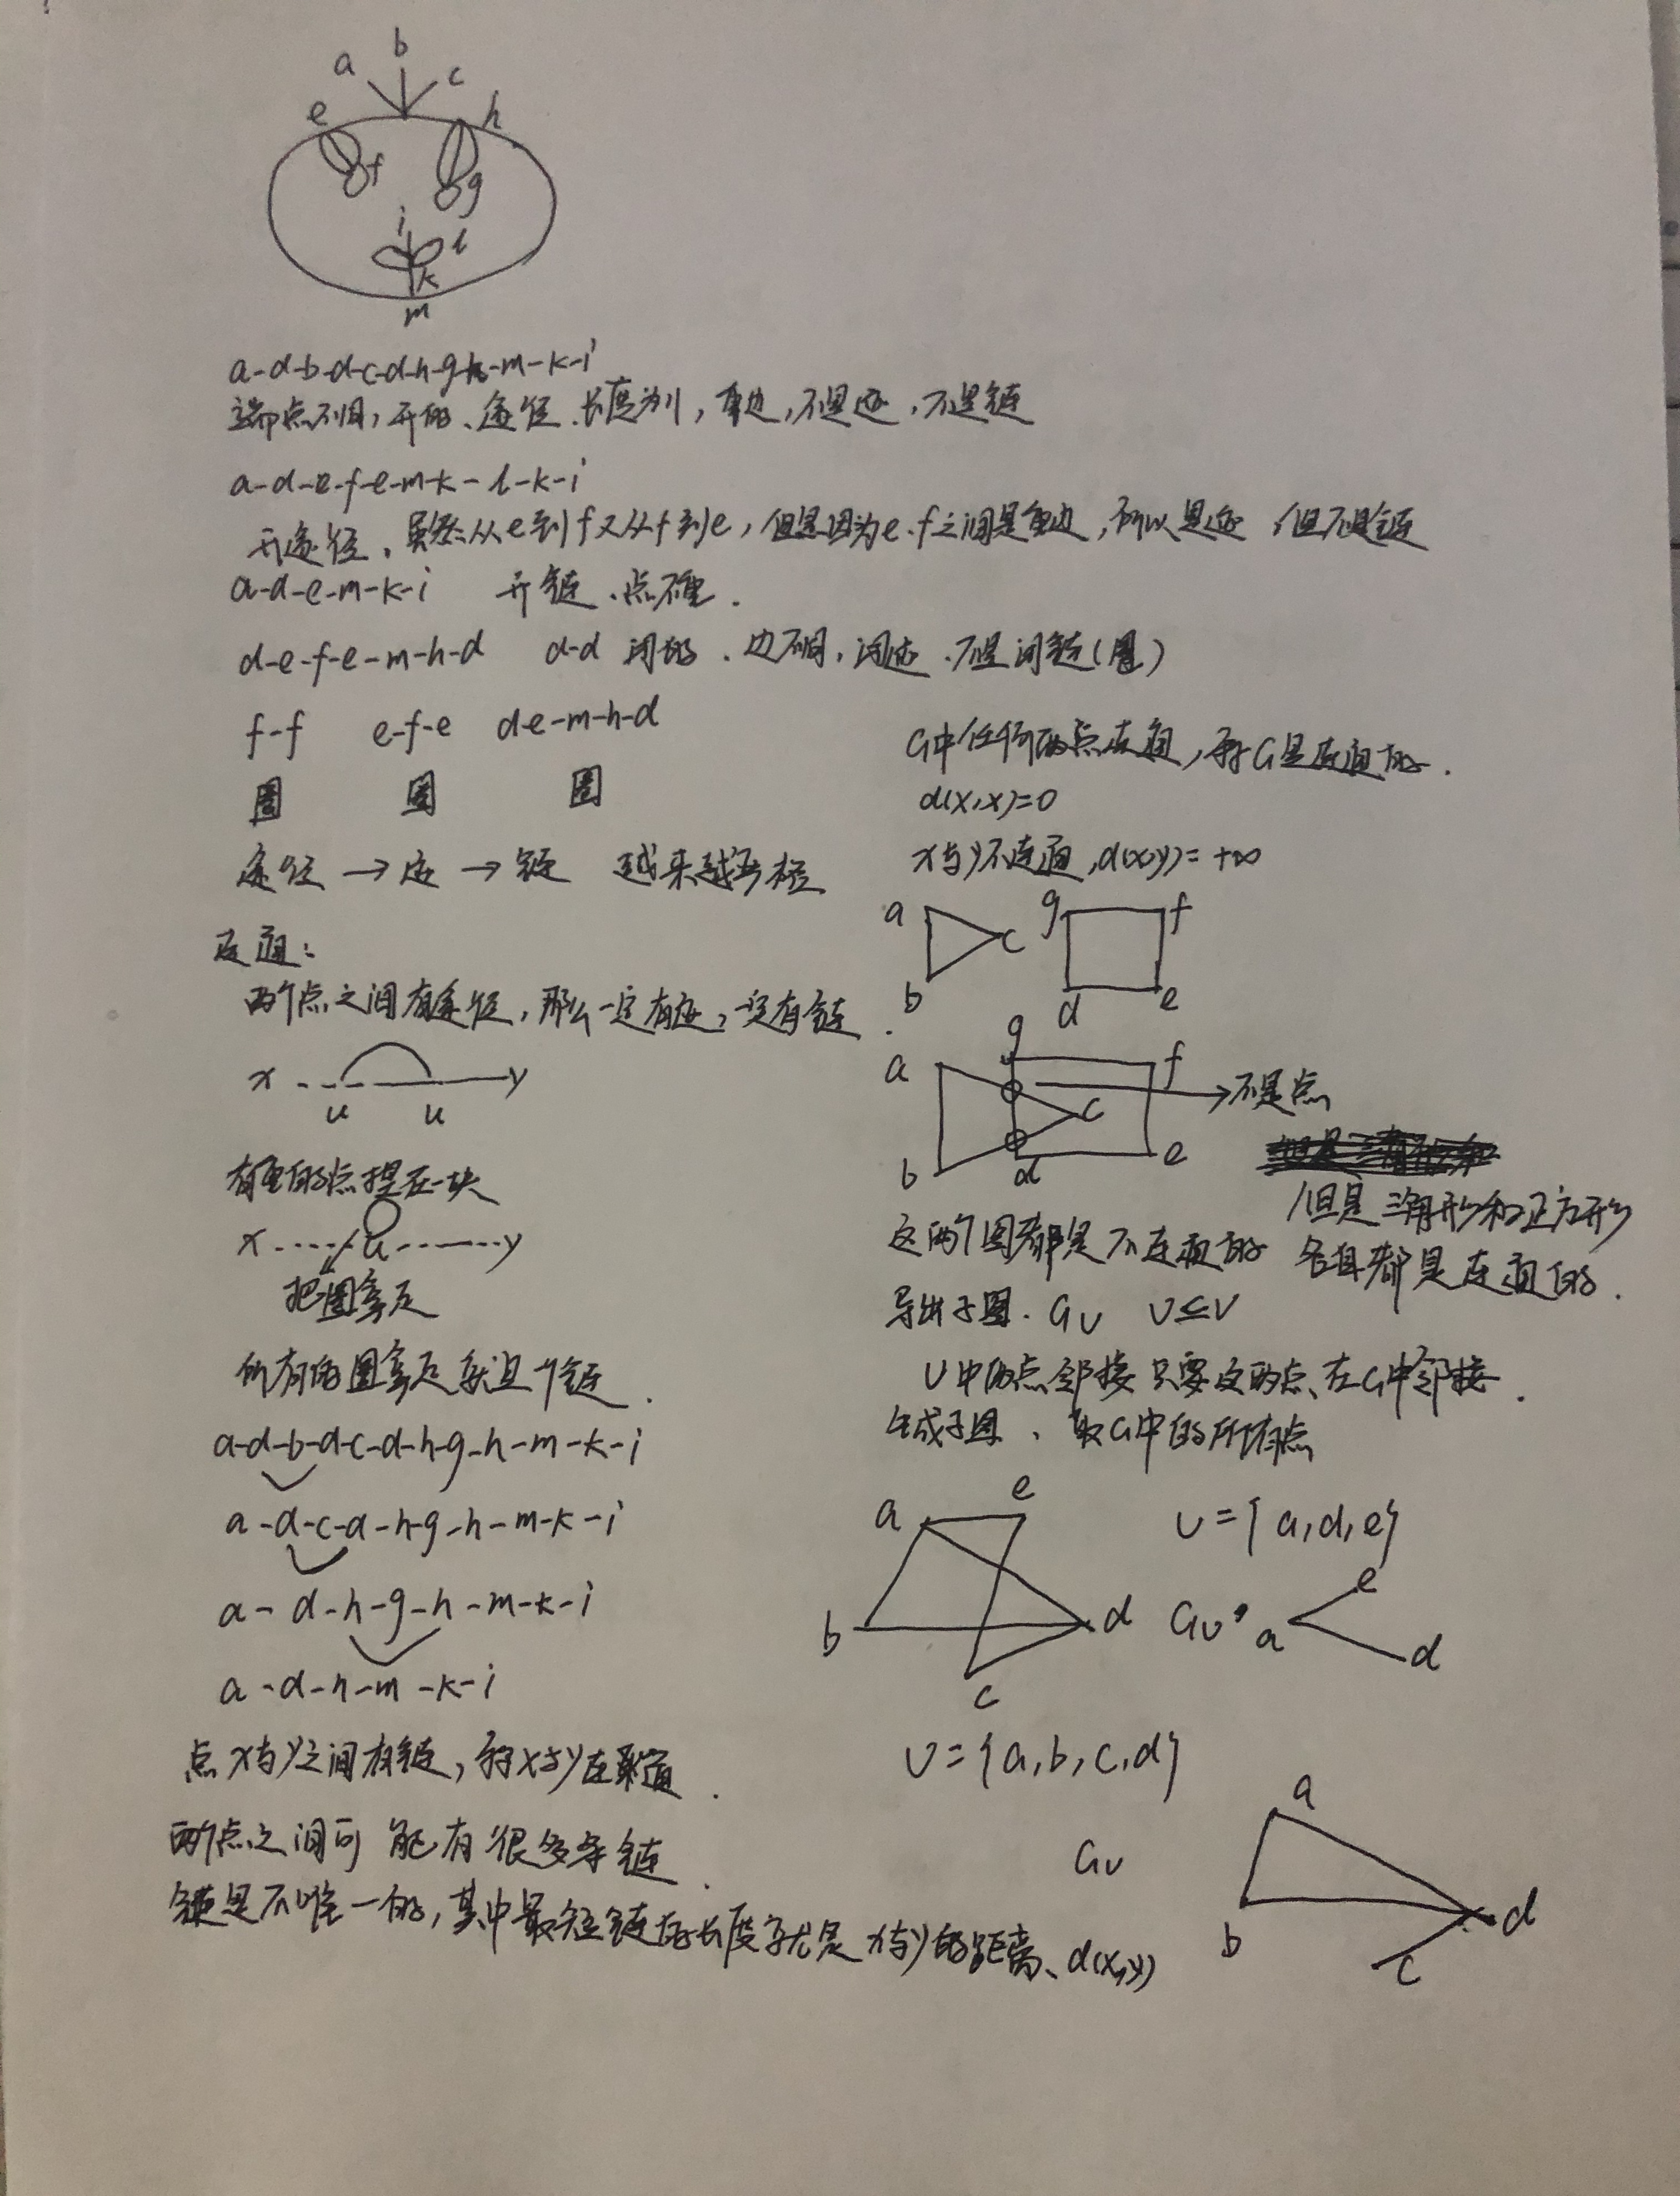 b
a
c
e
h
f
g
i
l
k
m
a-d-b-d-c-d-h-g-h-m-k-i
端点不同,开的、途径、长度为11,重边,不是迹,不是链
a-d-e-f-e-m-k-l-k-i
开途径,虽然从e到f又从f到e,但是因为e.f之间是重边,所以是迹,但不是链
a-d-e-m-k-i 开链、点不重.
d-e-f-e-m-h-d d-d 闭的、边不同,闭迹、不是闭链(圈)
f-f e-f-e d-e-m-h-d
圈 圈 圈
途径→迹→链 越来越严格
连通:
两个点之间有途径,那么一定有迹,一定有链.
x y
u u
有重的点捏在一块
x u y
把圈拿走
所有的圈拿走就是个链.
a-d-b-d-c-d-h-g-h-m-k-i
a-d-c-d-h-g-h-m-k-i
a-d-h-g-h-m-k-i
a-d-h-m-k-i
点x与y之间有链,称x与y连通.
两个点之间可能有很多条链.
链是不唯一的,其中最短链的长度就是x与y的距离、d(x,y)
G中任何两点连通,称G是连通的.
d(x,x)=0
x与y不连通,d(x,y)=+∞
a g f
c
b d e
g
a f
c
b d e
不是点
但是三角形和正方形
这两个图都是不连通的 各自都是连通的.
导出子图. GU U⊆V
U中两点邻接只要这两点在G中邻接.
生成子图、取G中的所有点
a e
b d
c
U={a,d,e}
GU
e
a
d
U={a,b,c,d}
GU
a
b d
c